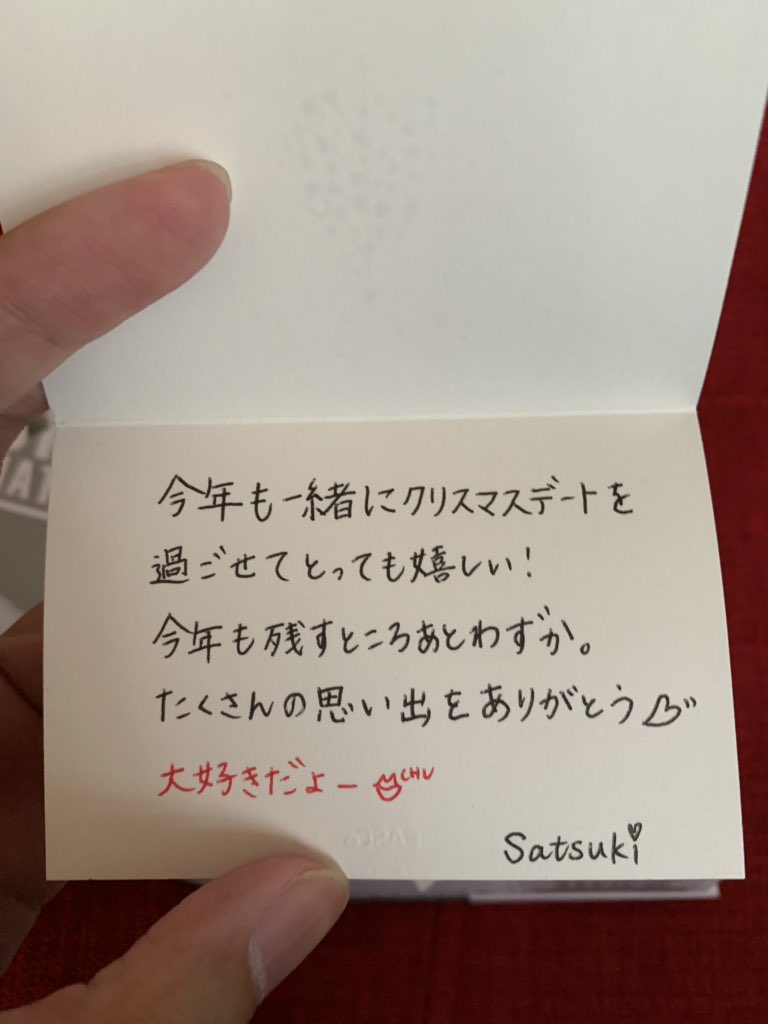 今年も一緒にクリスマスデートを
過ごせてとっても嬉しい!
今年も残すところあとわずか。
たくさんの思い出をありがとう
大好きだよー CHU
Satsuki